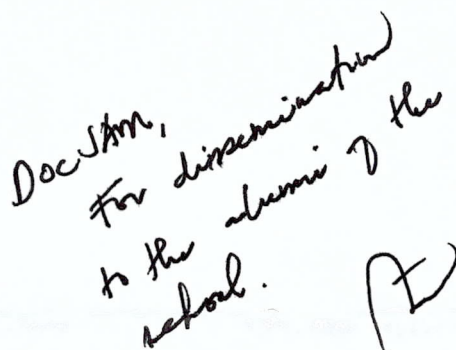 Doc SAM,
For dissemination
to the alumni of the
school.